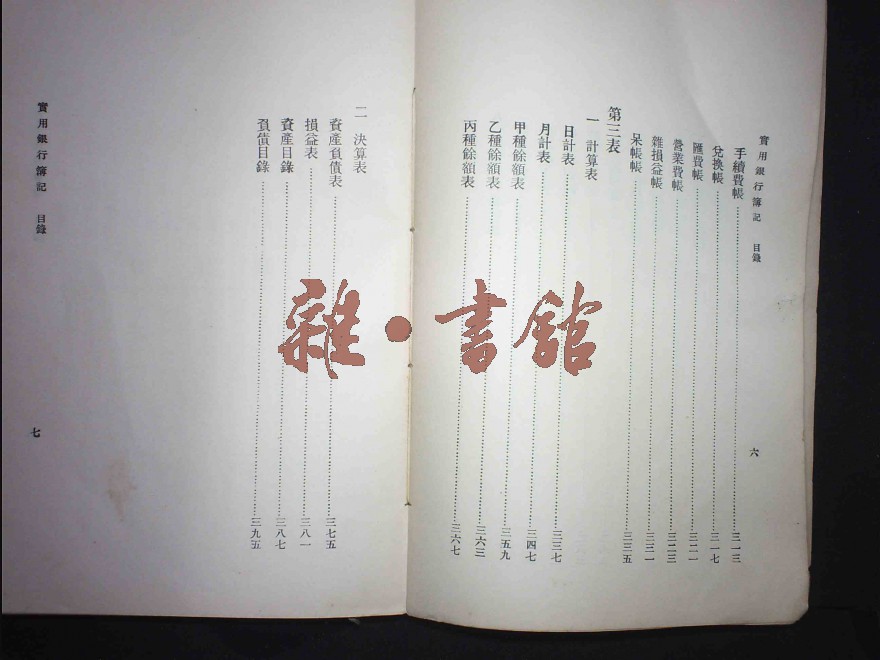 實用銀行簿記 目錄
六
手續費帳 三一三
兌換帳 三一七
匯費帳 三二一
營業費帳 三二三
雜損益帳 三三一
呆帳帳 三三五
第三表
一 計算表
日計表 三三七
月計表 三四七
甲種餘額表 三五九
乙種餘額表 三六三
丙種餘額表 三六七
二 決算表
資產負債表 三七五
損益表 三八一
資產目錄 三八七
負債目錄 三九五
實用銀行簿記 目錄
七
雜·書館